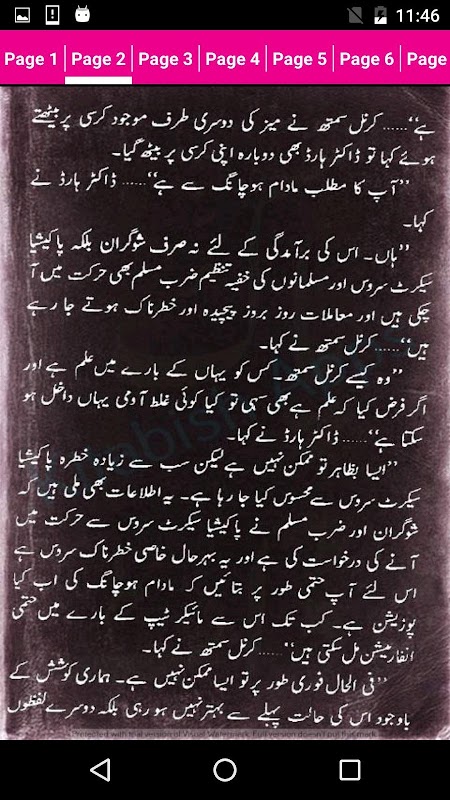 11:46
Page 1 | Page 2 | Page 3 | Page 4 | Page 5 | Page 6 | Page
ہے‘‘...... کرنل سمتھ نے میز کی دوسری طرف موجود کرسی پر بیٹھتے
ہوئے کہا تو ڈاکٹر ہارڈ بھی دوبارہ اپنی کرسی پر بیٹھ گیا۔
’’آپ کا مطلب مادام ہوچانگ سے ہے‘‘...... ڈاکٹر ہارڈ نے
کہا۔
’’ہاں۔ اس کی برآمدگی کے لئے نہ صرف شوگران بلکہ پاکیشیا
سیکرٹ سروس اور مسلمانوں کی خفیہ تنظیم ضرب مسلم بھی حرکت میں آ
چکی ہیں اور معاملات روز بروز پیچیدہ اور خطرناک ہوتے جا رہے
ہیں‘‘...... کرنل سمتھ نے کہا۔
’’وہ کیسے کرنل سمتھ۔ کس کو یہاں کے بارے میں علم ہے اور
اگر فرض کیا کہ علم ہے بھی سہی تو کیا کوئی غلط آدمی یہاں داخل ہو
سکتا ہے‘‘...... ڈاکٹر ہارڈ نے کہا۔
’’ایسا بظاہر تو ممکن نہیں ہے لیکن سب سے زیادہ خطرہ پاکیشیا
سیکرٹ سروس سے محسوس کیا جا رہا ہے۔ یہ اطلاعات بھی ملی ہیں کہ
شوگران اور ضرب مسلم نے پاکیشیا سیکرٹ سروس سے حرکت میں
آنے کی درخواست کی ہے اور یہ بہرحال خاصی خطرناک سروس ہے
اس لئے آپ حتمی طور پر بتائیں کہ مادام ہوچانگ کی اب کیا
پوزیشن ہے۔ کب تک اس سے مائیکرو ٹیپ کے بارے میں حتمی
انفارمیشن مل سکتی ہیں‘‘...... کرنل سمتھ نے کہا۔
’’فی الحال فوری طور پر تو ایسا ممکن نہیں ہے۔ ہماری کوشش کے
باوجود اس کی حالت پہلے سے بہتر نہیں ہو رہی بلکہ دوسرے لفظوں
Protected with trial version of Visual Watermark. Full version doesn't put this mark.